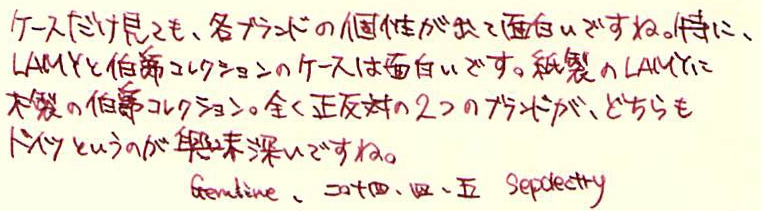 ケースだけ見ても、各ブランドの個性が出て面白いですね。特に、
LAMYと伯爵コレクションのケースは面白いです。紙製のLAMYに
木製の伯爵コレクション。全く正反対の2つのブランドが、どちらも
ドイツというのが興味深いですね。
二〇十四、四、五